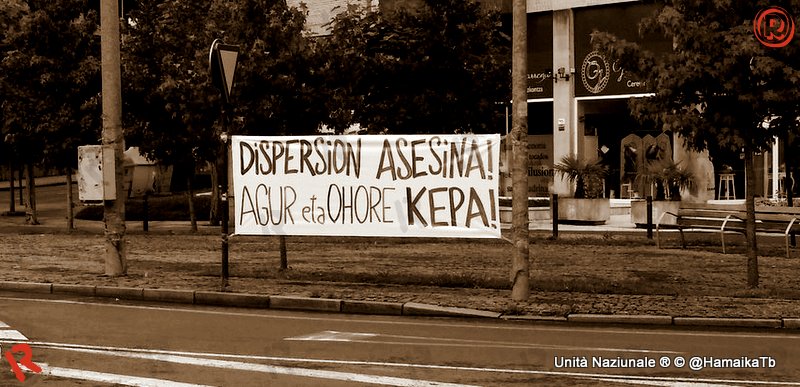 DiSPERSiON ASESiNA!
AGUR eta OHORE KEPA!
Unità Naziunale ® © @HamaikaTb